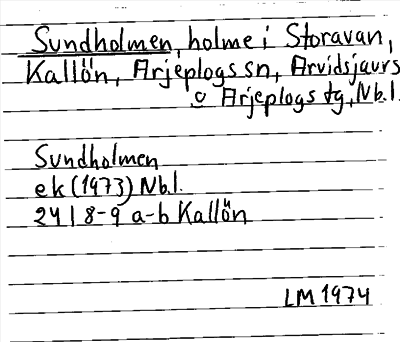 Sundholmen, holme i Storavan,
Kallön, Arjeplogs sn, Arvidsjaurs
o Arjeplogs tg, Nb.l.
Sundholmen
ek (1973) Nb.l.
24 I 8-9 a-b Kallön
LM 1974